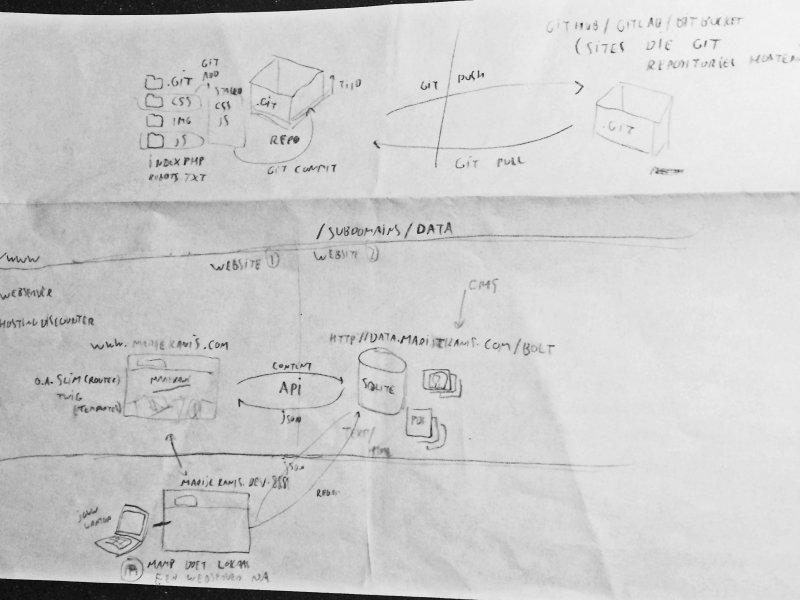 GITHUB / GITLAB / BITBUCKET
(SITES DIE GIT
REPOSITORIES HOSTEN
GIT
ADD
.GIT
CSS
IMG
JS
INDEX.PHP
ROBOTS.TXT
STAGED
CSS
JS
.GIT
REPO
TIJD
GIT COMMIT
GIT PUSH
GIT PULL
.GIT
/SUBDOMAINS/DATA
/WWW
WEBSITE 1
WEBSITE 2
WEBSERVER
HOSTING DISCOUNTER
CMS
HTTP://DATA.MARIJEKANIS.COM/BOLT
WWW.MARIJEKANIS.COM
O.A. SLIM (ROUTER)
TWIG
(TEMPLATES)
CONTENT
API
json
SQLITE
PDF
TEXT/
json
MARIJEKANIS.DEV:8881
JOUW
LAPTOP
MAMP DOET LOKAAL
EEN WEBSERVER NA